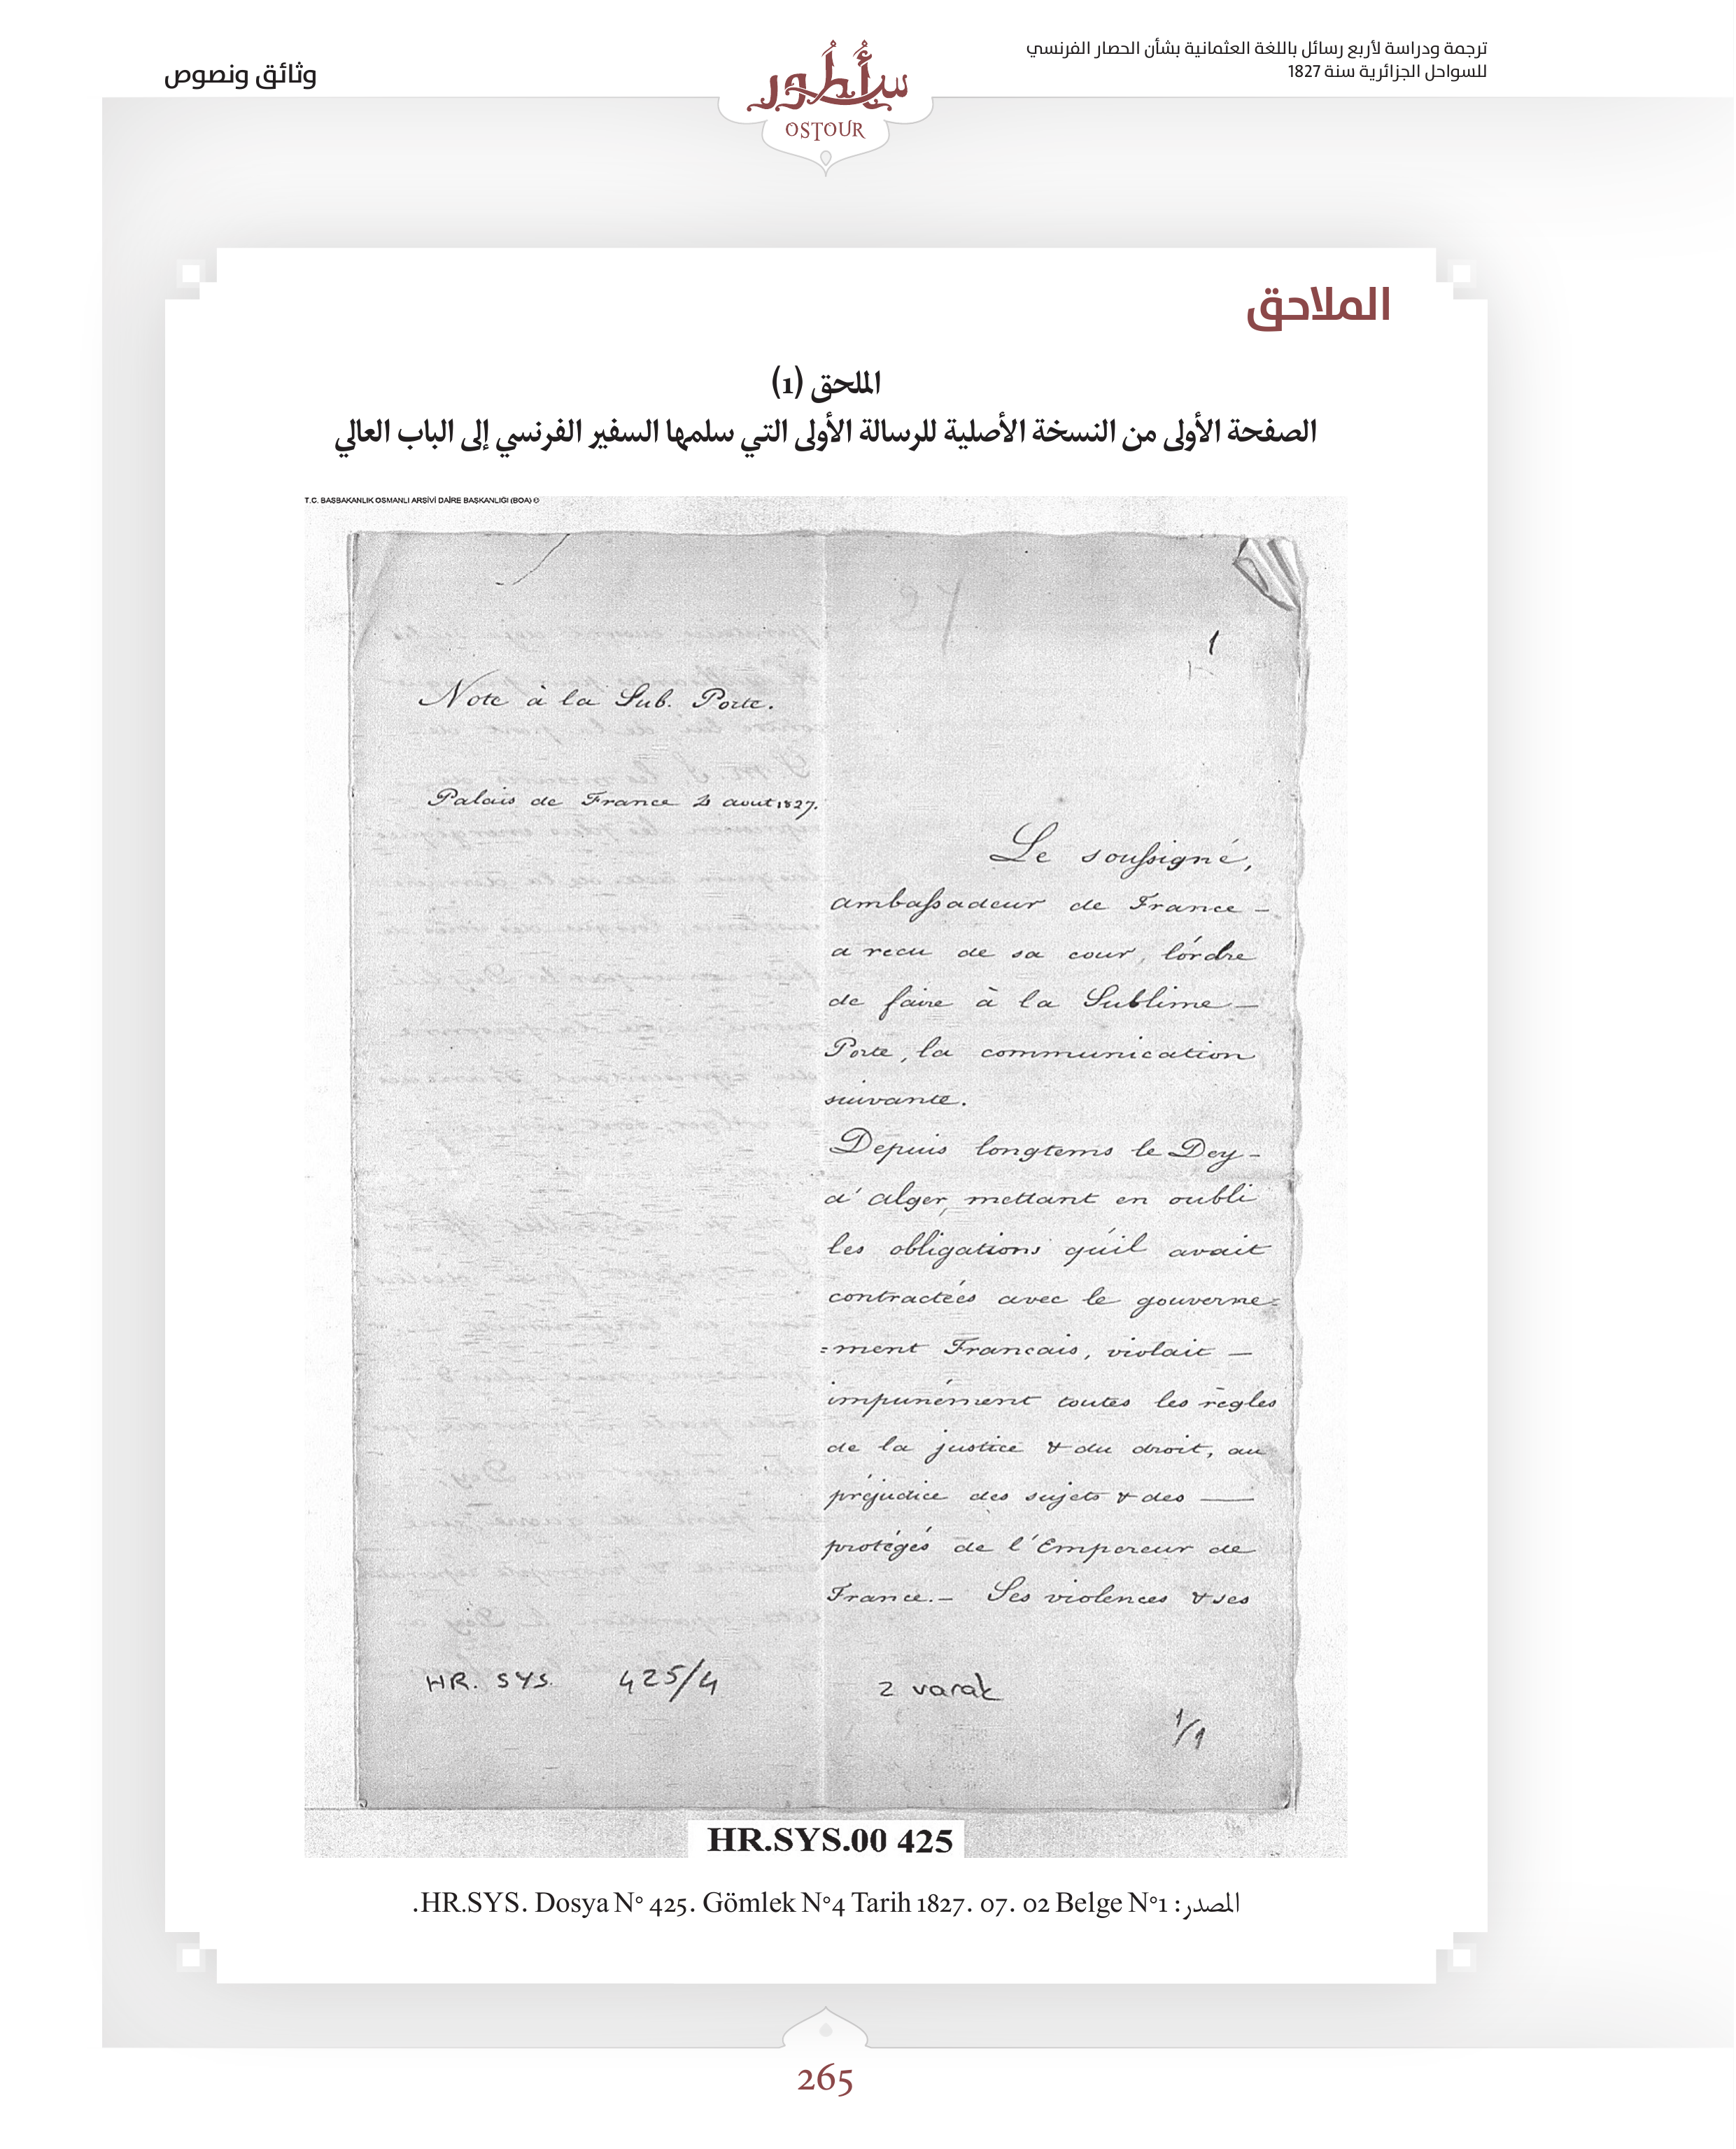 ترجمة ودراسة لأربع رسائل باللغة العثمانية بشأن الحصار الفرنسي
للسواحل الجزائرية سنة 1827
سطور
OSTOUR
وثائق ونصوص
الملاحق
الملحق (1)
الصفحة الأولى من النسخة الأصلية للرسالة الأولى التي سلمها السفير الفرنسي إلى الباب العالي
T.C. BAŞBAKANLIK OSMANLI ARŞİVİ DAİRE BAŞKANLIĞI (BOA) ©
27
1
Note à la Sub. Porte.
Palais de France aout 1827.
Le soussigné,
ambassadeur de France —
a recu de sa cour, l'ordre
de faire à la Sublime —
Porte, la communication
suivante.
Depuis longtems le Dey —
d'alger, mettant en oubli
les obligations qu'il avait
contractées avec le gouverne=
=ment Francais, violait —
impunément toutes les règles
de la justice & du droit, au
préjudice des sujets & des —
protégés de l'Empereur de
France. — Ses violences & ses
HR. SYS. 425/4
2 varak
1/1
HR.SYS.00 425
المصدر: HR.SYS. Dosya N° 425. Gömlek N°4 Tarih 1827. 07. 02 Belge N°1.
265